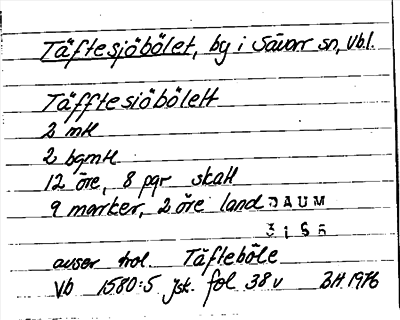 Täftesjöbölet, by i Sävar sn, Vbl.
Täfftesiöbölett
2 mtl
2 bgmtl
12 öre, 8 pgr skatt
9 marker, 2 öre land
DAUM
3155
avser trol. Täfteböle
Vb 1580:5 jsk. fol 38 v BH 1976